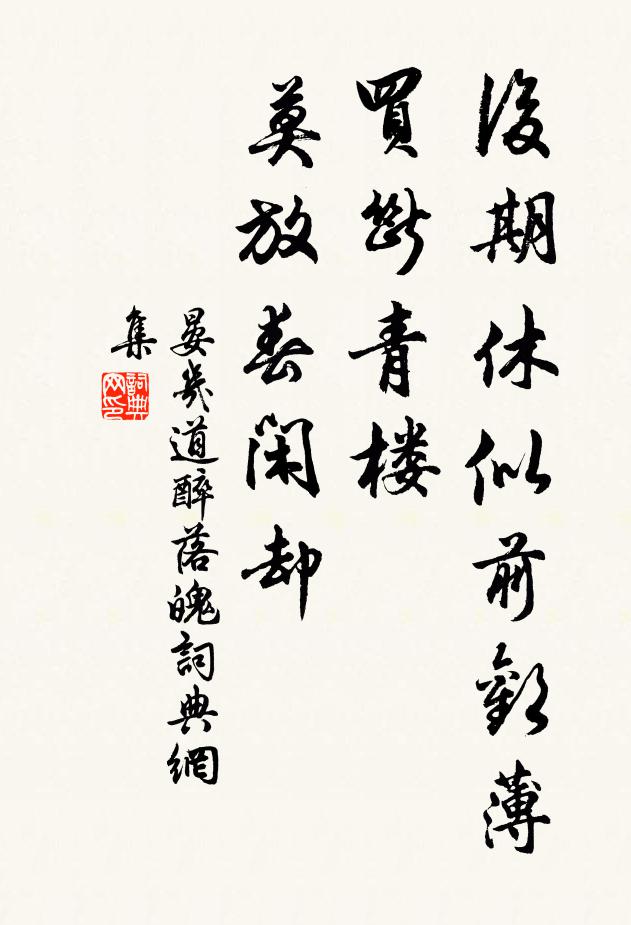 後期休似前歡薄
買斷青楼
莫放春閑却
晏幾道醉落魄詞典網
集
詞典网印